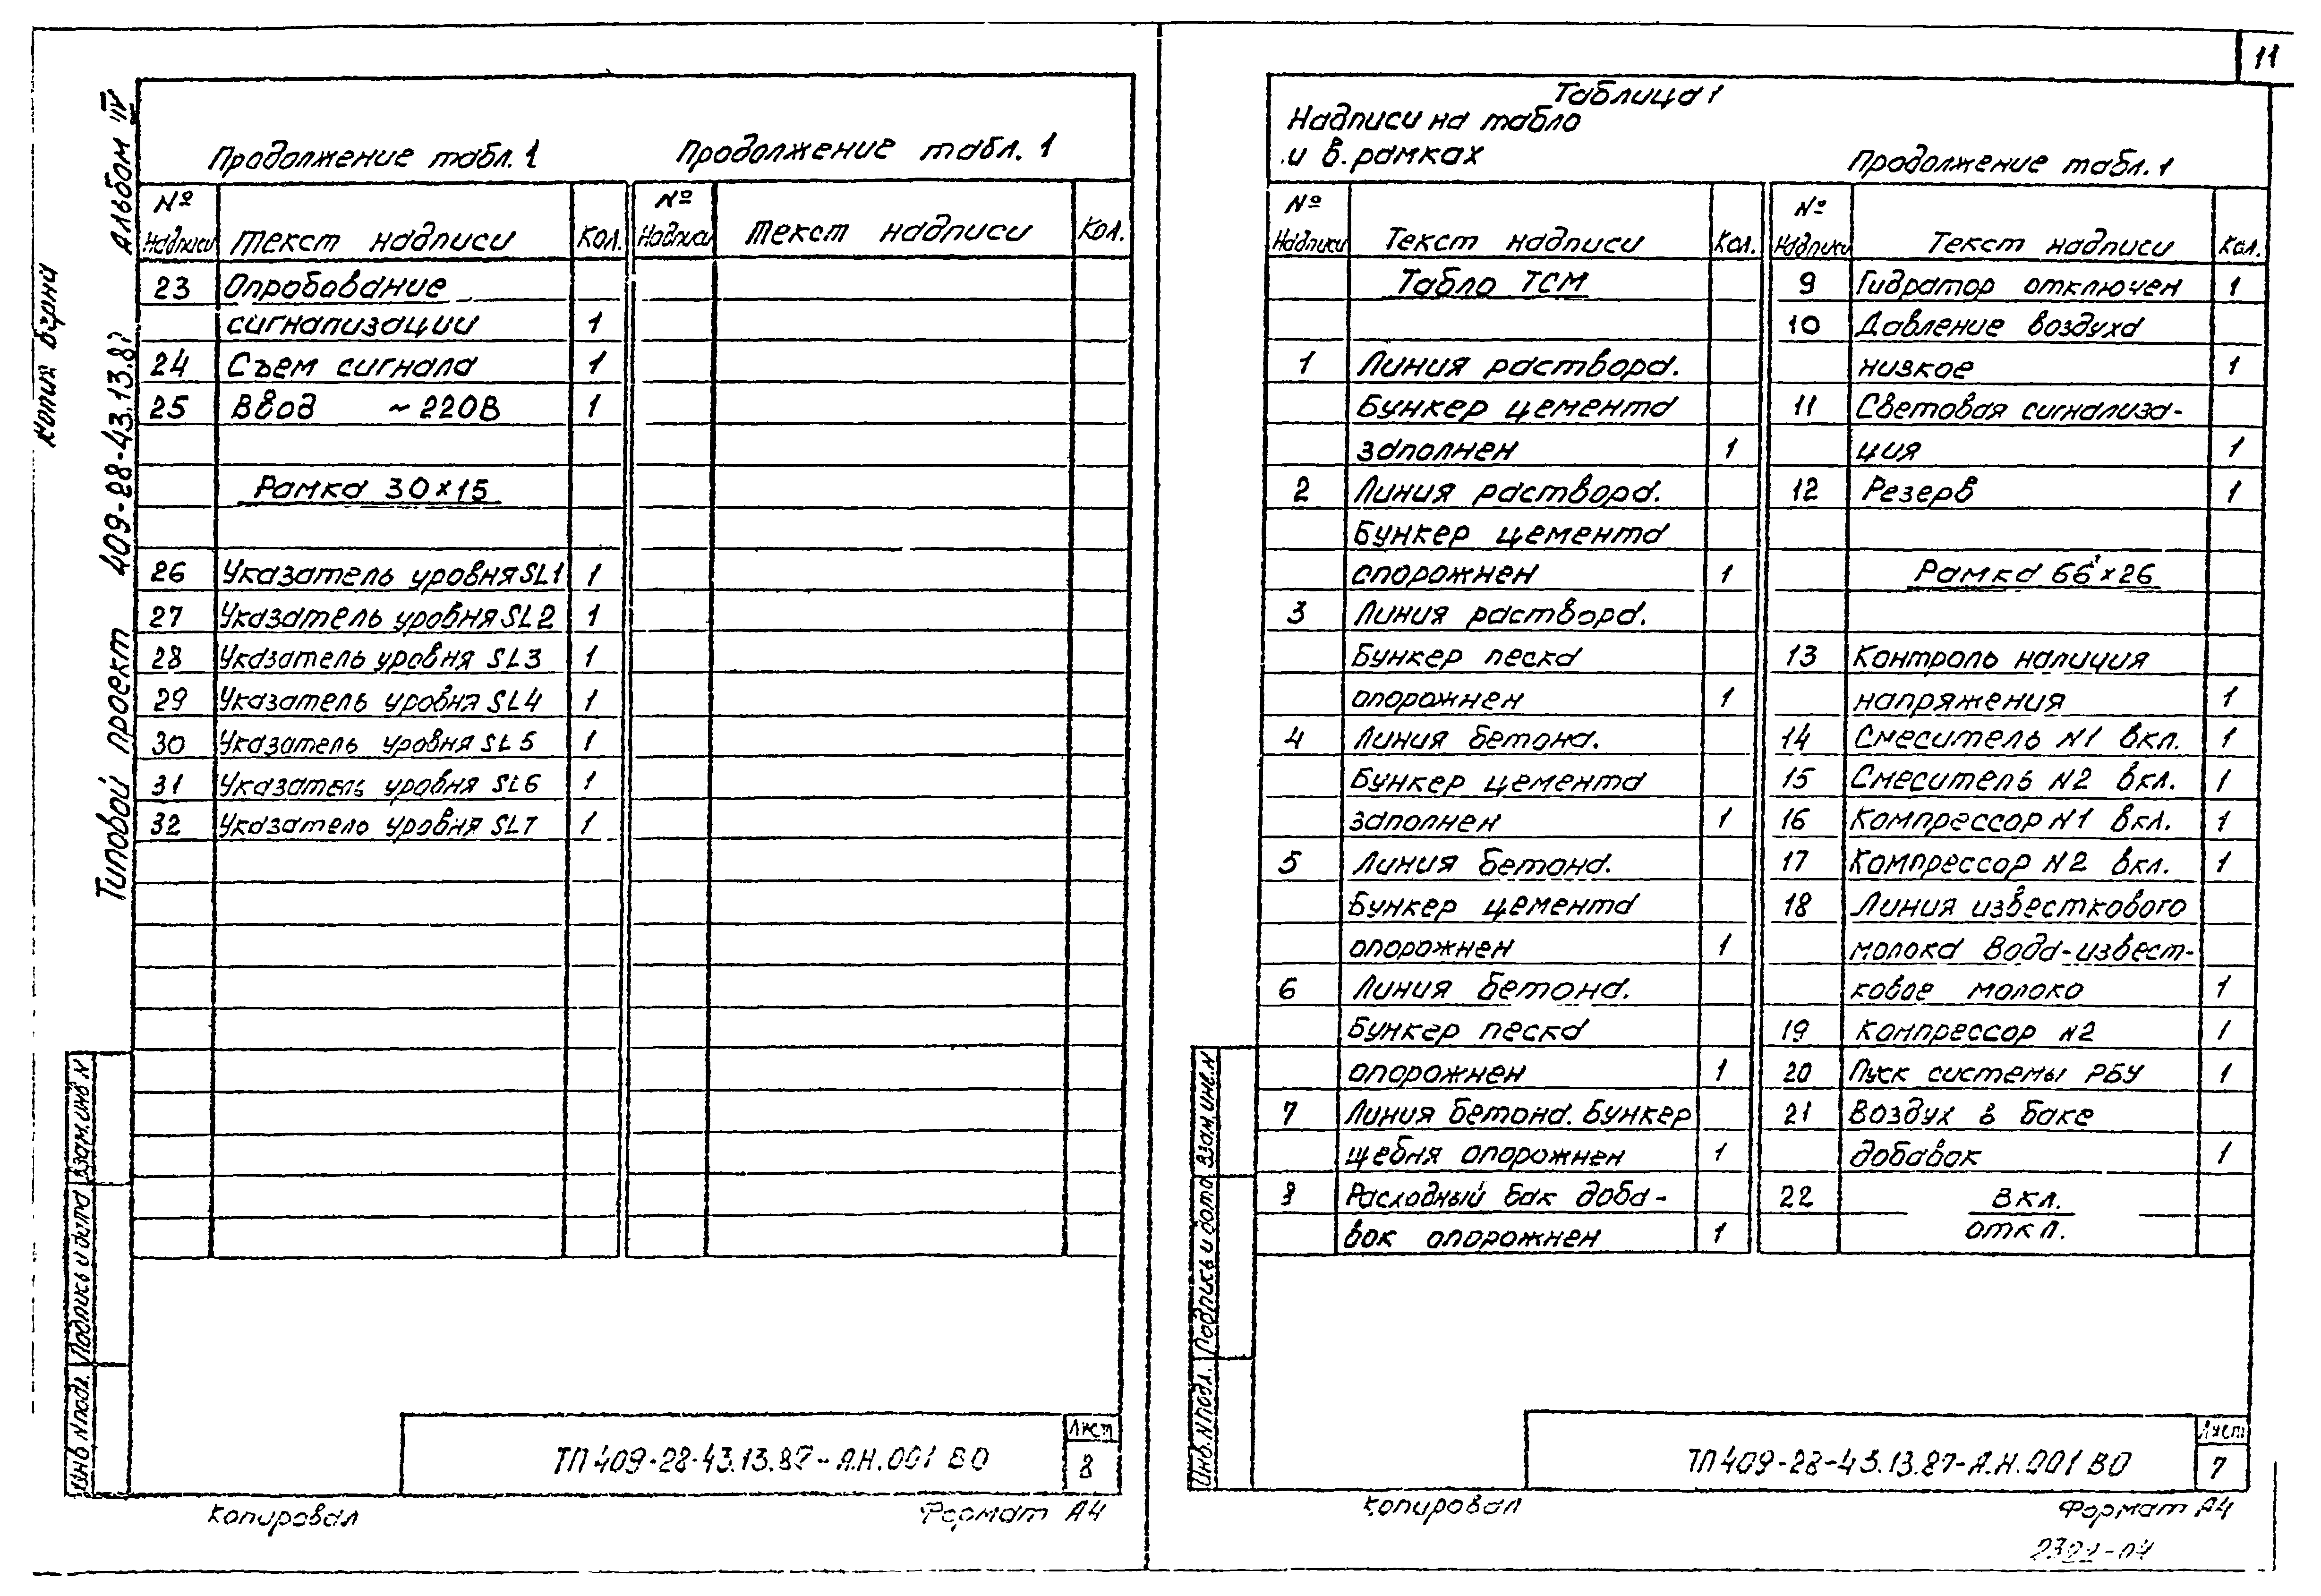 11
Копия верна
Типовой проект 409-28-43.13.87 Альбом IV
Продолжение табл. 1
Продолжение табл. 1
№ надписи Текст надписи Кол. № надписи Текст надписи Кол.
23 Опробование
сигнализации 1
24 Съем сигнала 1
25 Ввод ~220В 1
Рамка 30×15
26 Указатель уровня SL1 1
27 Указатель уровня SL2 1
28 Указатель уровня SL3 1
29 Указатель уровня SL4 1
30 Указатель уровня SL5 1
31 Указатель уровня SL6 1
32 Указатель уровня SL7 1
Инв № подл. Подпись и дата Взам.инв №
ТП 409-28-43.13.87-А.Н.001 ВО
Лист
8
Копировал
Формат А4
Таблица 1
Надписи на табло
и в рамках
№ надписи Текст надписи Кол.
Табло ТСМ
1 Линия раствора.
Бункер цемента
заполнен 1
2 Линия раствора.
Бункер цемента
опорожнен 1
3 Линия раствора.
Бункер песка
опорожнен 1
4 Линия бетона.
Бункер цемента
заполнен 1
5 Линия бетона.
Бункер цемента
опорожнен 1
6 Линия бетона.
Бункер песка
опорожнен 1
7 Линия бетона. Бункер
щебня опорожнен 1
8 Расходный бак доба-
вок опорожнен 1
Продолжение табл. 1
№ надписи Текст надписи Кол.
9 Гидратор отключен 1
10 Давление воздуха
низкое 1
11 Световая сигнализа-
ция 1
12 Резерв 1
Рамка 66×26
13 Контроль наличия
напряжения 1
14 Смеситель N1 вкл. 1
15 Смеситель N2 вкл. 1
16 Компрессор N1 вкл. 1
17 Компрессор N2 вкл. 1
18 Линия известкового
молока Вода-извест-
ковое молоко 1
19 Компрессор N2 1
20 Пуск системы РБУ 1
21 Воздух в баке
добавок 1
22 вкл.
откл.
Инв. № подл. Подпись и дата Взам.инв.N
ТП 409-28-43.13.87-А.Н.001 ВО
Лист
7
Копировал
Формат А4